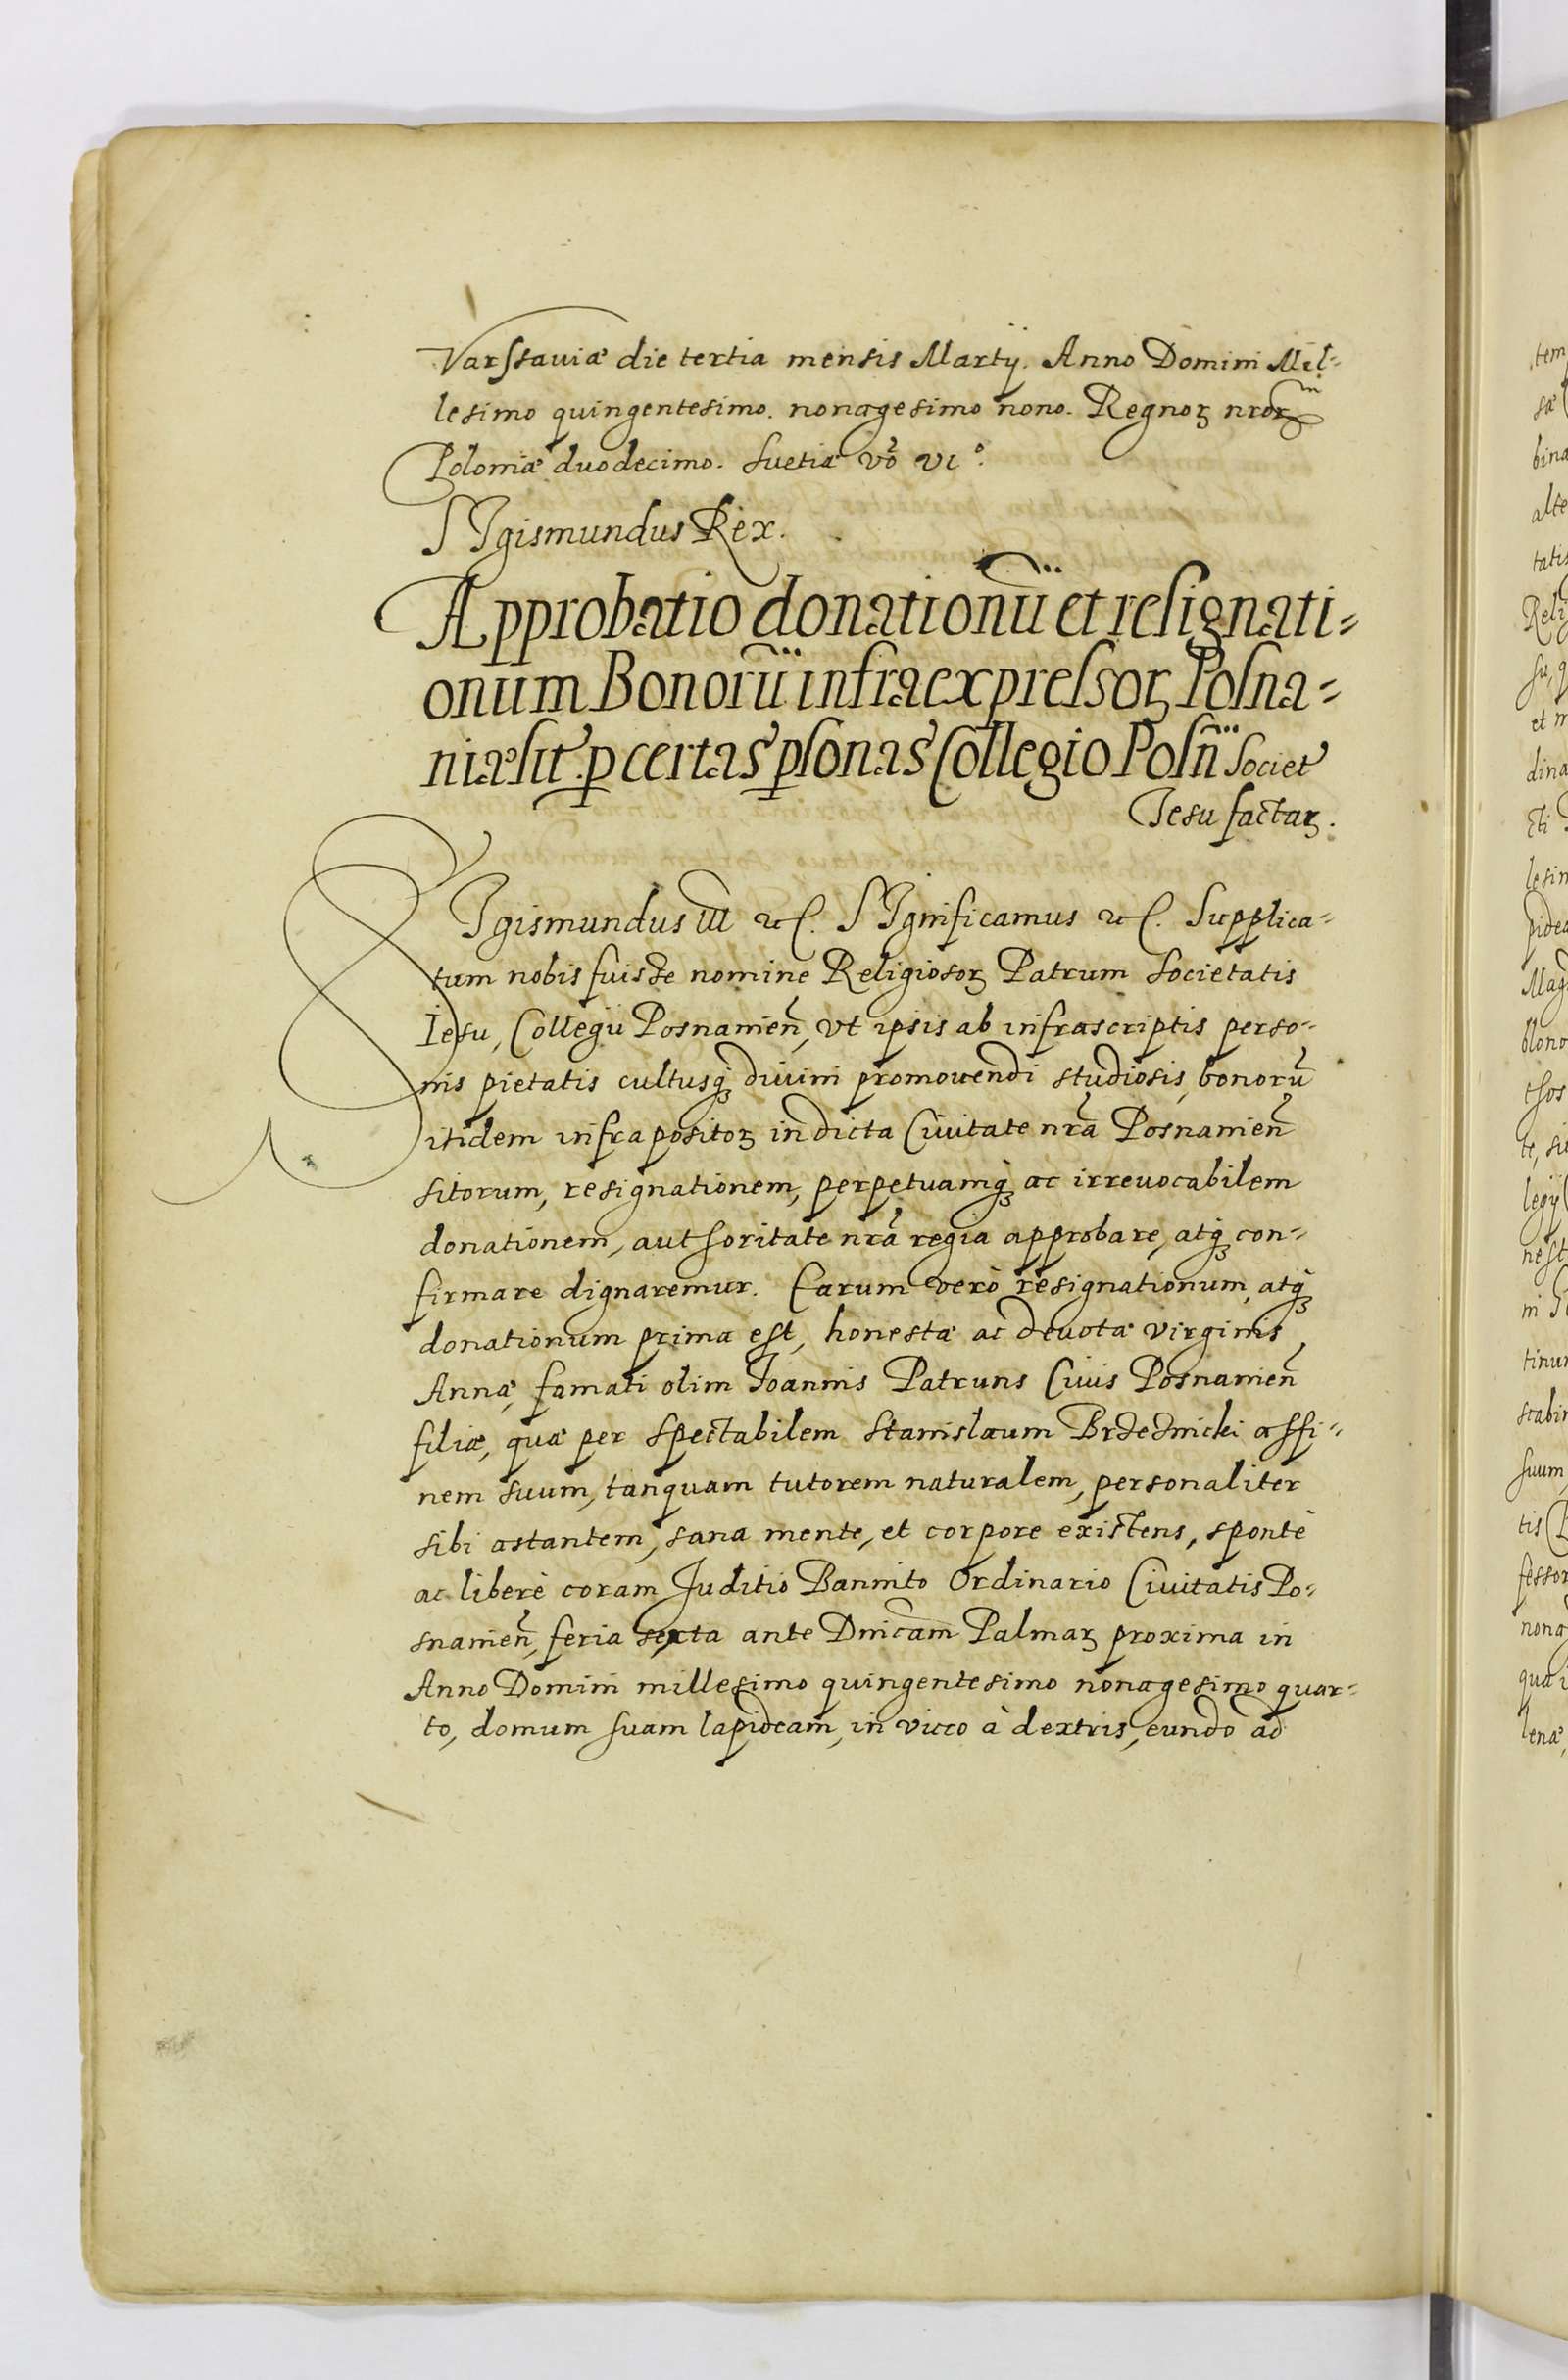 Varssauiæ die tertia mensis Martij. Anno Domini Mil-
lesimo quingentesimo. nonagesimo nono. Regnoꝝ nr̃oꝝ
Poloniæ duodecimo. Suetiæ vº vi°.
SIgismundus Rex.
Approbatio donationũ et resignati-
onum Bonorũ infra expressoꝝ Posna-
niæ sit̃. ꝑ certas ꝑsonas Collegio Posñ Societ
Iesu factaꝝ.
SIgismundus III etc. SIgnificamus etc. Supplica-
tum nobis fuisse nomine Religiosoꝝ Patrum Societatis
Iesu, Collegii Posnanieñ, vt ipsis ab infrascriptis perso-
nis pietatis cultusq́ȝ diuini promouendi studiosis, bonorũ
itidem infra positoꝝ in dicta Ciuitate nr̃a Posnanieñ
sitorum, resignationem, perpetuamq́ȝ ac irreuocabilem
donationem, authoritate nr̃a regia approbare, atq́ȝ con-
firmare dignaremur. Earum verò resignationum, atq́ȝ
donationum prima est, honestæ ac deuotæ virginis
Annæ, famati olim Ioannis Patruns Ciuis Posnanieñ
filiæ, quæ per spectabilem Stanislaum Brzeznicki affi-
nem suum, tanquam tutorem naturalem, personaliter
sibi astantem, sana mente, et corpore existens, spontè
ac liberè coram Iuditio Bannito Ordinario Ciuitatis Po-
snanieñ, feria sexta ante Dnicam̃ Palmaꝝ proxima in
Anno Domini millesimo quingentesimo nonagesimo quar-
to, domum suam lapideam, in vicco à dextris, eundo ad